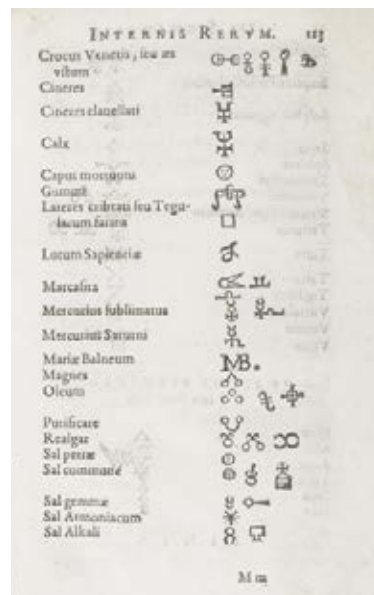 INTERNIS RERVM. 113
Crocus Veneris, seu æs
vstum
Cineres
Cineres clauellati
Calx
Caput mortuum
Gummæ
Lateres cribrati seu Tegu-
larum farina
Lutum Sapientiæ
Marcasita
Mercurius sublimatus
Mercurius Saturni
Mariæ Balneum MB.
Magnes
Oleum
Purificare
Realgar
Sal petræ
Sal commune
Sal gemmæ
Sal Armoniacum
Sal Alkali
M m